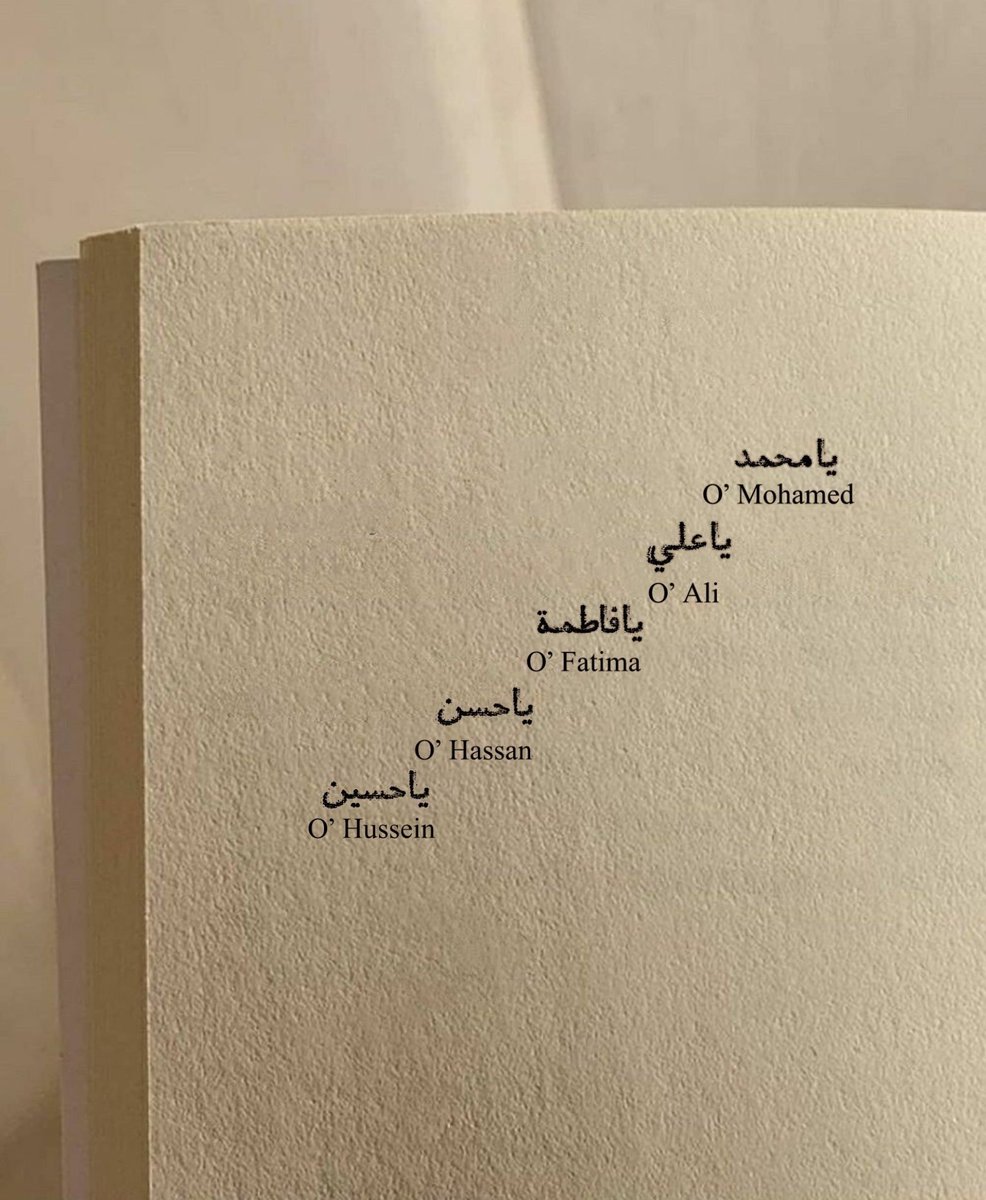 يامحمد
O’ Mohamed
ياعلي
O’ Ali
يافاطمة
O’ Fatima
ياحسن
O’ Hassan
ياحسين
O’ Hussein